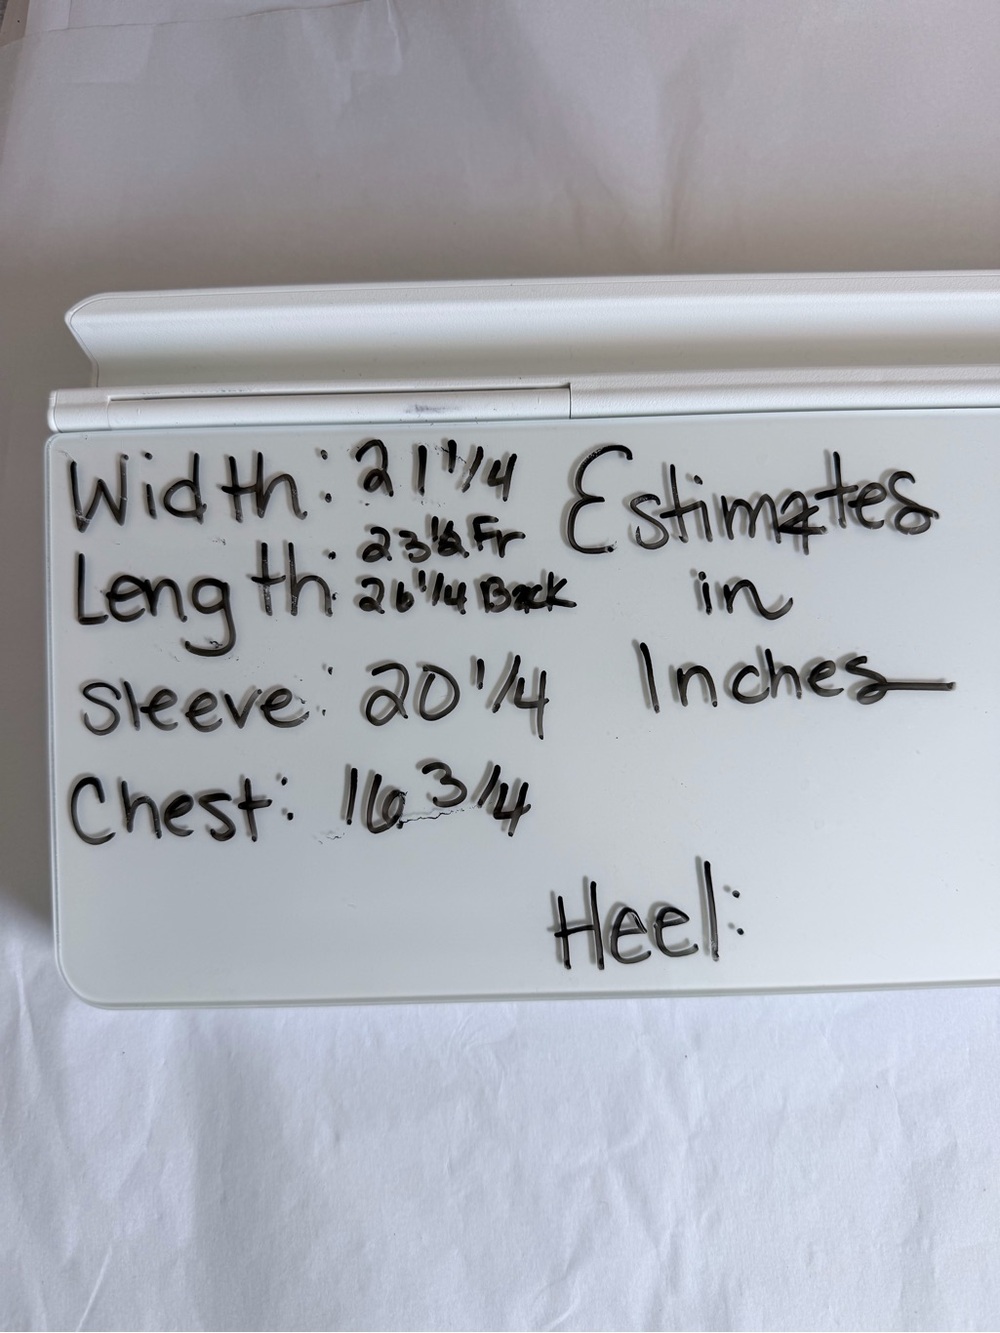 Width: 21 1/4
Length: 23 1/2 Fr
26 1/4 Back
Sleeve: 20 1/4
Chest: 16 3/4
Estimates
in
Inches
Heel: